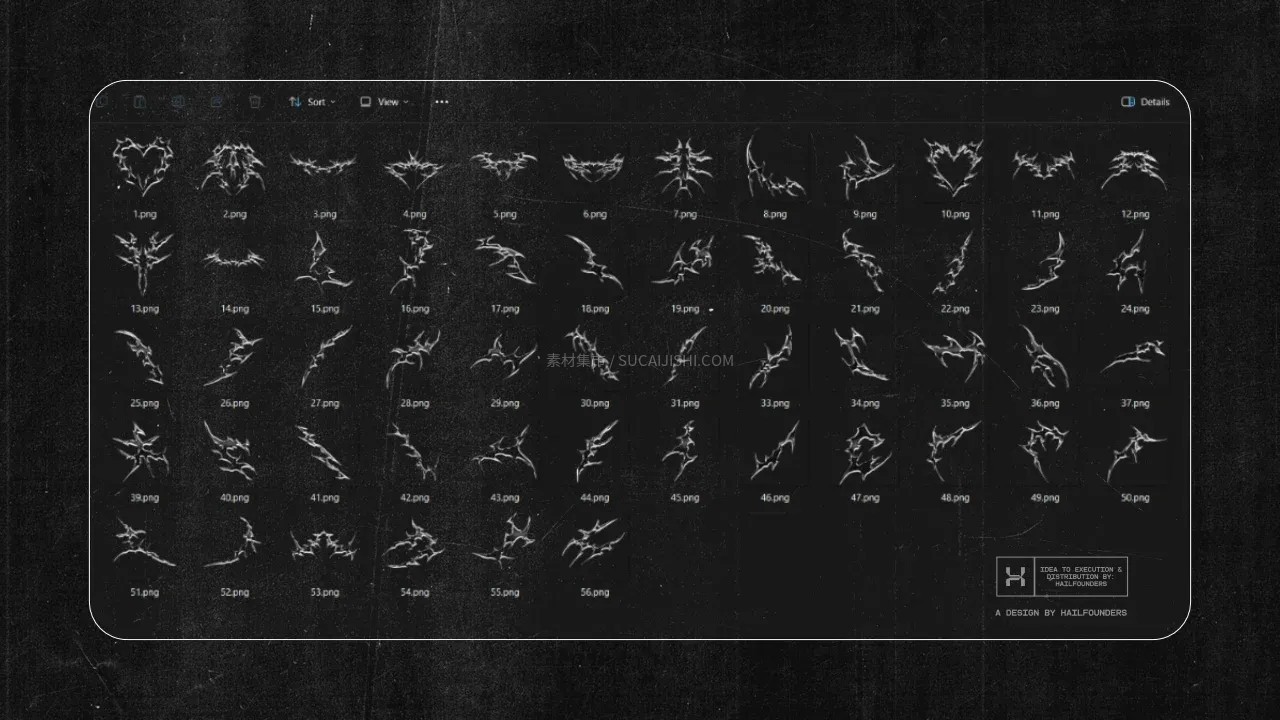 Sort
View
Details
1.png
2.png
3.png
4.png
5.png
6.png
7.png
8.png
9.png
10.png
11.png
12.png
13.png
14.png
15.png
16.png
17.png
18.png
19.png
20.png
21.png
22.png
23.png
24.png
素材集市 / SUCAIJISHI.COM
25.png
26.png
27.png
28.png
29.png
30.png
31.png
33.png
34.png
35.png
36.png
37.png
39.png
40.png
41.png
42.png
43.png
44.png
45.png
46.png
47.png
48.png
49.png
50.png
51.png
52.png
53.png
54.png
55.png
56.png
IDEA TO EXECUTION &
DISTRIBUTION BY:
HAILFOUNDERS
A DESIGN BY HAILFOUNDERS